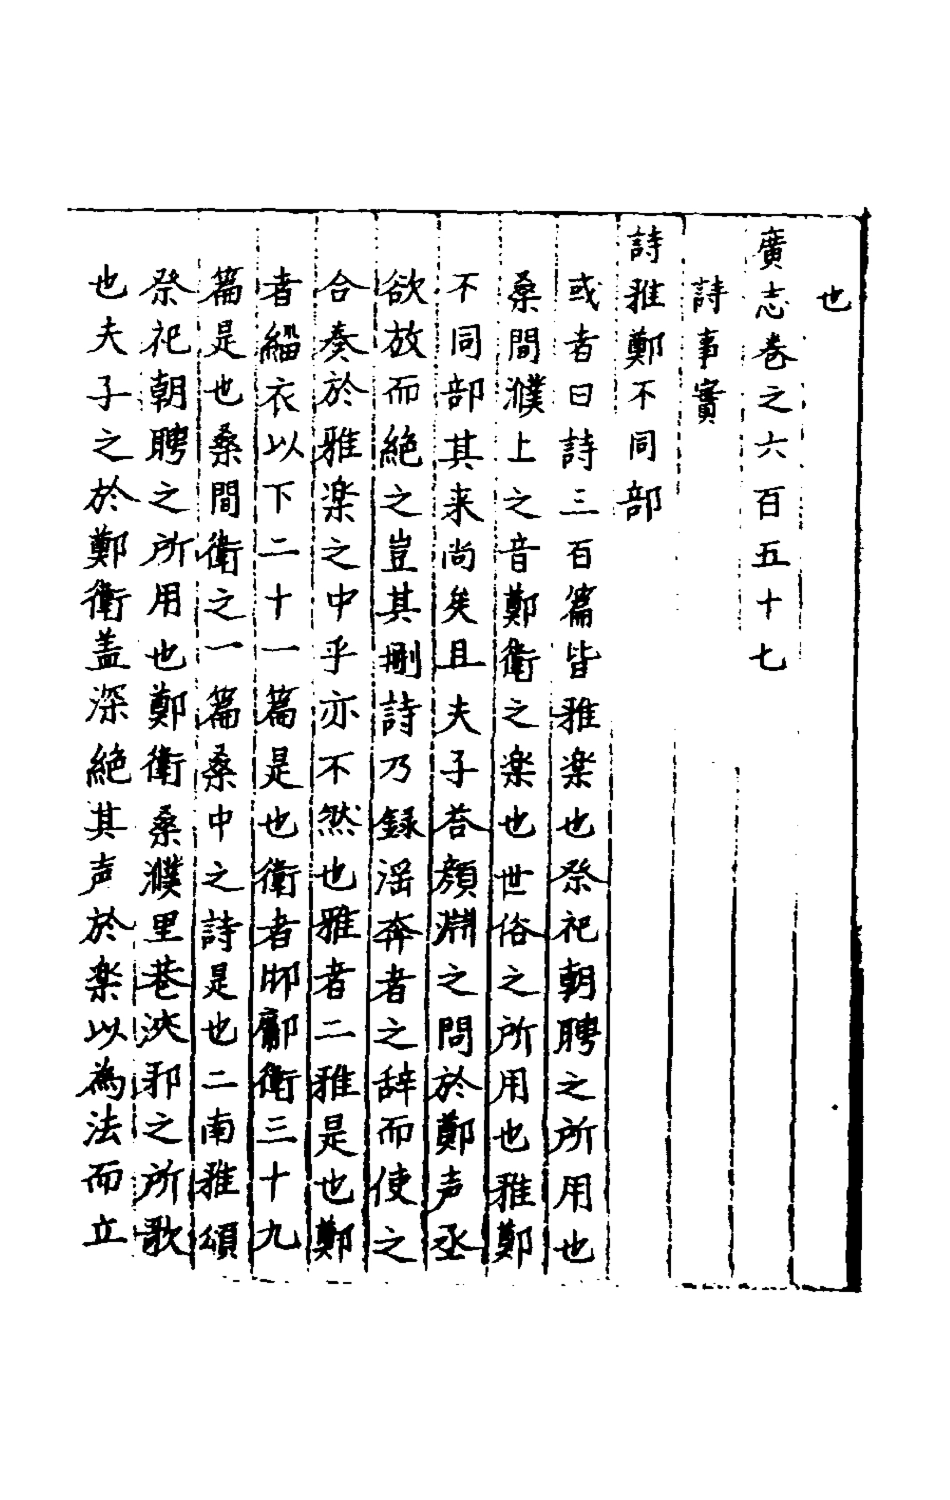 也
廣志卷之六百五十七
詩事實
詩雅鄭不同部
或者曰詩三百篇皆雅楽也祭祀朝聘之所用也
桑間濮上之音鄭衛之楽也世俗之所用也雅鄭
不同部其来尚矣且夫子荅顏淵之問於鄭声亟
欲放而絶之豈其刪詩乃録滛奔者之辞而使之
合奏於雅楽之中乎亦不然也雅者二雅是也鄭
者緇衣以下二十一篇是也衛者邶鄘衛三十九
篇是也桑間衛之一篇桑中之詩是也二南雅頌
祭祀朝聘之所用也鄭衛桑濮里巷浹邪之所歌
也夫子之於鄭衛盖深絶其声於楽以為法而立